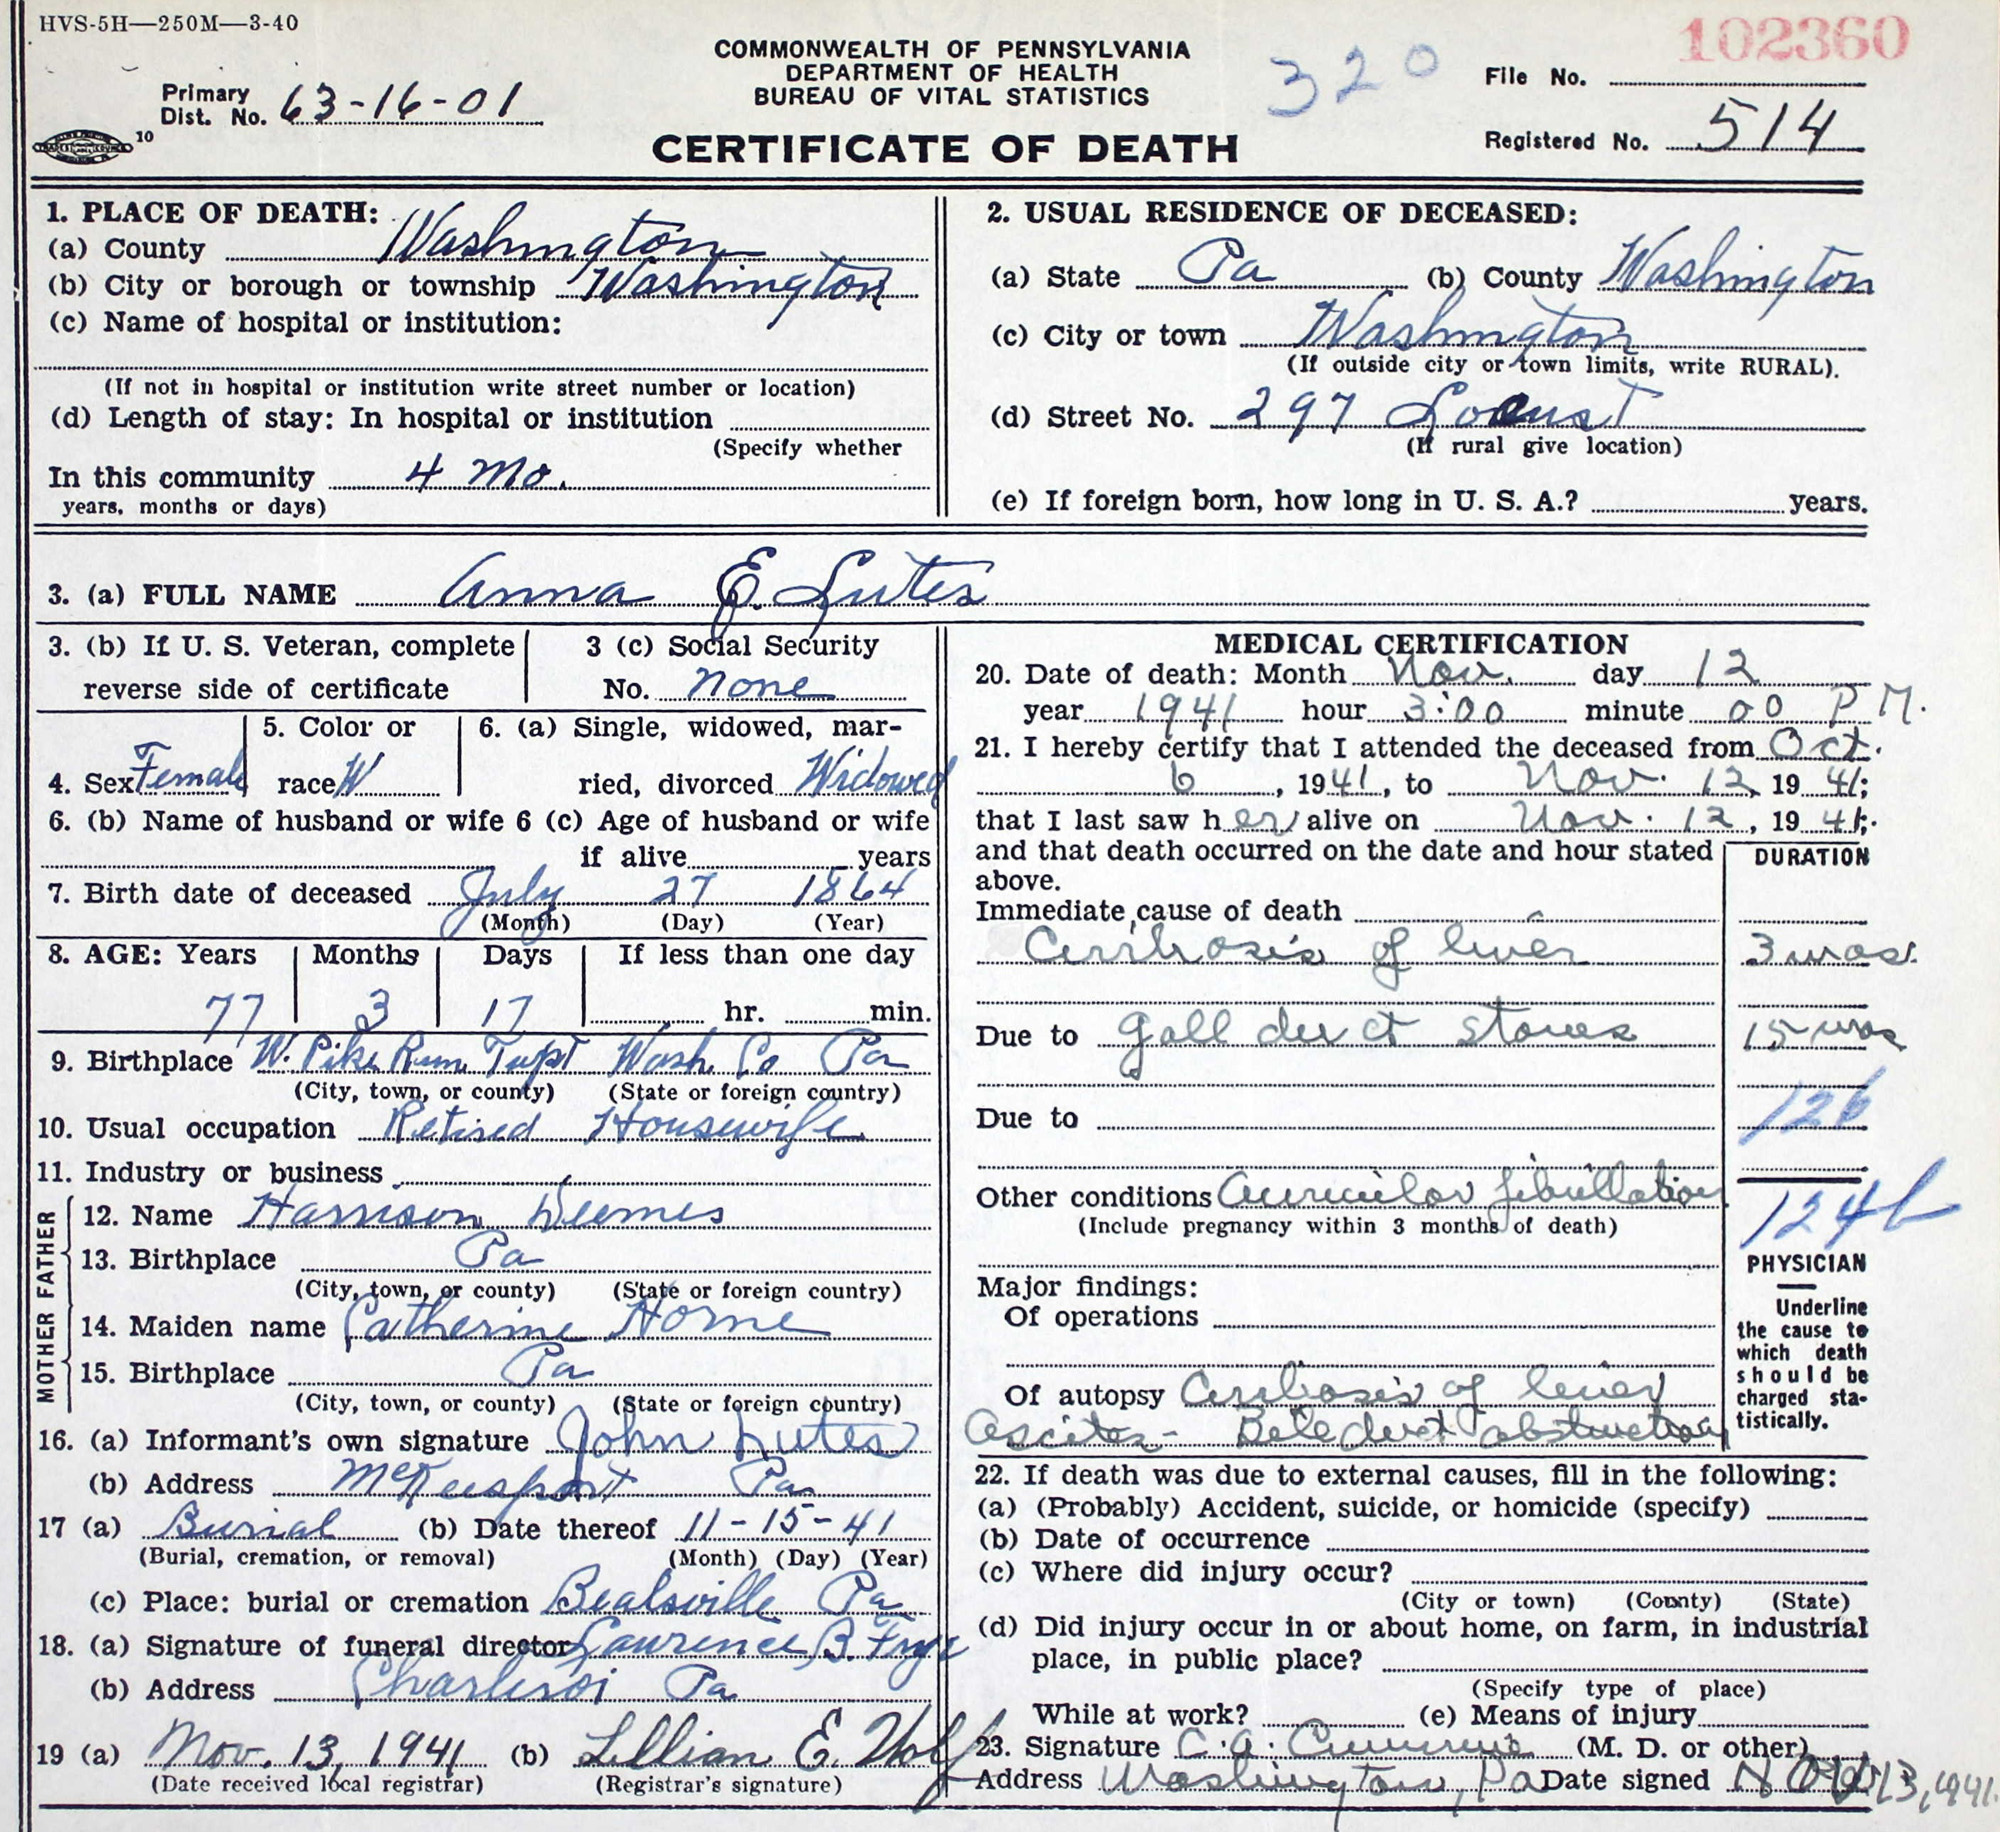 HVS-5H—250M—3-40
102360
COMMONWEALTH OF PENNSYLVANIA
DEPARTMENT OF HEALTH
BUREAU OF VITAL STATISTICS
320
File No.
Primary
Dist. No. 63-16-01
10
CERTIFICATE OF DEATH
Registered No. 514
1. PLACE OF DEATH:
(a) County Washington
(b) City or borough or township Washington
(c) Name of hospital or institution:
(If not in hospital or institution write street number or location)
(d) Length of stay: In hospital or institution
(Specify whether
In this community 4 Mo.
years, months or days)
2. USUAL RESIDENCE OF DECEASED:
(a) State Pa (b) County Washington
(c) City or town Washington
(If outside city or town limits, write RURAL).
(d) Street No. 297 Locust
(If rural give location)
(e) If foreign born, how long in U. S. A.? years.
3. (a) FULL NAME Anna E. Lutes
3. (b) If U. S. Veteran, complete
reverse side of certificate
3 (c) Social Security
No. None
4. Sex Female
5. Color or
race W
6. (a) Single, widowed, mar-
ried, divorced Widowed
6. (b) Name of husband or wife 6 (c) Age of husband or wife
if alive years
7. Birth date of deceased July 27 1864
(Month) (Day) (Year)
8. AGE: Years Months Days If less than one day
77 3 17 hr. min.
9. Birthplace W. Pike Run Twpt Wash. Co Pa
(City, town, or county) (State or foreign country)
10. Usual occupation Retired Housewife
11. Industry or business
FATHER
12. Name Harrison Deemes
13. Birthplace Pa
(City, town, or county) (State or foreign country)
MOTHER
14. Maiden name Catherine Horne
15. Birthplace Pa
(City, town, or county) (State or foreign country)
16. (a) Informant's own signature John Lutes
(b) Address McKeesport Pa
17 (a) Burial (b) Date thereof 11-15-41
(Burial, cremation, or removal) (Month) (Day) (Year)
(c) Place: burial or cremation Bealsville Pa
18. (a) Signature of funeral director Laurence B. Frye
(b) Address Charleroi Pa
19 (a) Nov. 13, 1941 (b) Lillian E. Wolf
(Date received local registrar) (Registrar's signature)
MEDICAL CERTIFICATION
20. Date of death: Month Nov. day 12
year 1941 hour 3:00 minute 00 P.M.
21. I hereby certify that I attended the deceased from Oct.
6, 1941, to Nov. 12, 19 41;
that I last saw her alive on Nov. 12, 19 41;
and that death occurred on the date and hour stated
above.
DURATION
Immediate cause of death
Cirrhosis of liver 3 mos.
Due to gall duct stones 15 mos
Due to
126
Other conditions Auricular fibrillation
(Include pregnancy within 3 months of death)
124b
Major findings:
Of operations
Of autopsy Cirrhosis of liver
Ascites - Bile duct obstruction
PHYSICIAN
Underline
the cause to
which death
should be
charged sta-
tistically.
22. If death was due to external causes, fill in the following:
(a) (Probably) Accident, suicide, or homicide (specify)
(b) Date of occurrence
(c) Where did injury occur?
(City or town) (County) (State)
(d) Did injury occur in or about home, on farm, in industrial
place, in public place?
(Specify type of place)
While at work? (e) Means of injury
23. Signature C. A. (M. D. or other)
Address Washington, Pa Date signed Nov 13, 1941.